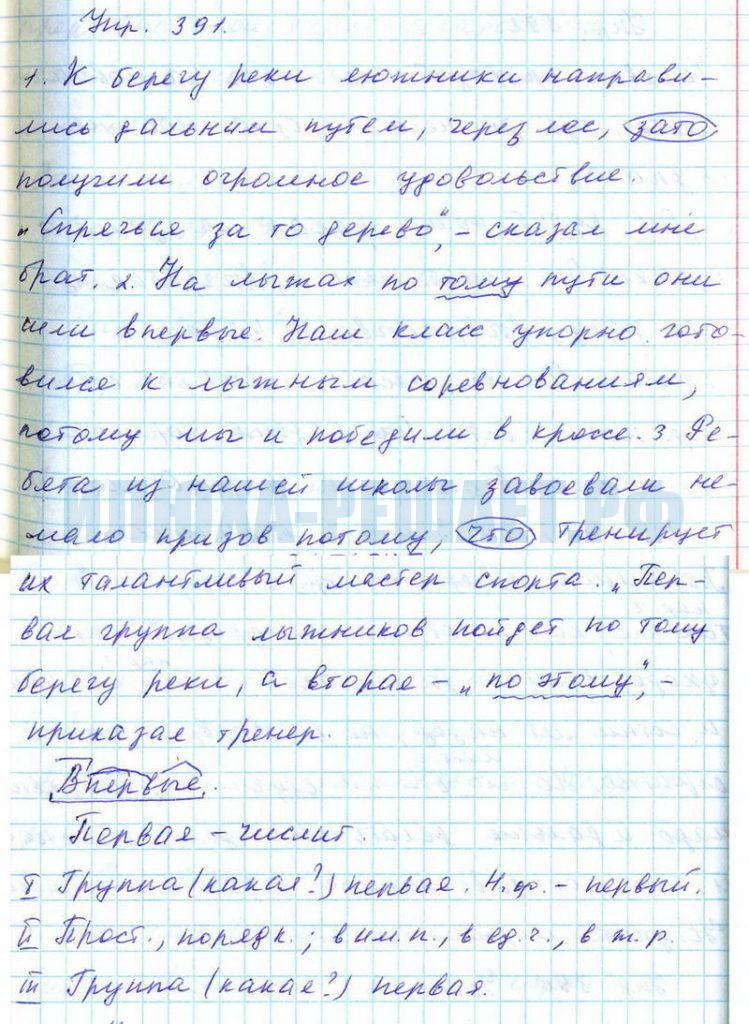 Упр. 391.
1. К берегу реки лыжники направи-
лись дальним путем, через лес, зато
получили огромное удовольствие.
„Спрячься за то дерево", - сказал мне
брат. 2. На лыжах по тому пути они
шли впервые. Наш класс упорно гото-
вился к лыжным соревнованиям,
потому мы и победили в кроссе. 3 Ре-
бята из нашей школы завоевали не-
мало призов потому, что тренирует
их талантливый мастер спорта. „Пер-
вая группа лыжников пойдет по тому
берегу реки, а вторая - „по этому", -
приказал тренер.
Впервые.
Первая - числит.
I Группа (какая?) первая. Н.ф. - первый.
II Прост., порядк.; в им.п., в ед.ч., в ж.р.
III Группа (какая?) первая.
ИЛЮХА-РЕШАЕТ.РФ